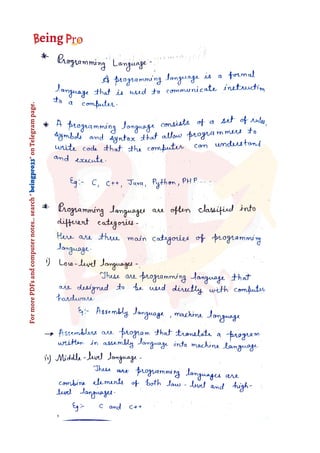 Being Pro
* Programming Language -
A programming language is a formal
language that is used to communicate instruction
to a computer.
* A programming language consists of a set of rules,
symbols and syntax that allow programmers to
write code that the computer can understand
and execute.
Eg:- C, C++, Java, Python, PHP....
* Programming languages are often classified into
different categories -
Here are three main categories of programming
language.
i) Low-level languages -
These are programming language that
are designed to be used directly with computer
hardware.
Eg:- Assembly language, machine language
→ Assemblers are program that translate a program
written in assembly language into machine language.
ii) Middle-level language -
These are programming languages are
combine elements of both low-level and high-
level languages.
Eg:- C and C++
For more PDFs and computer notes.. search "beingpro33" on Telegram page.